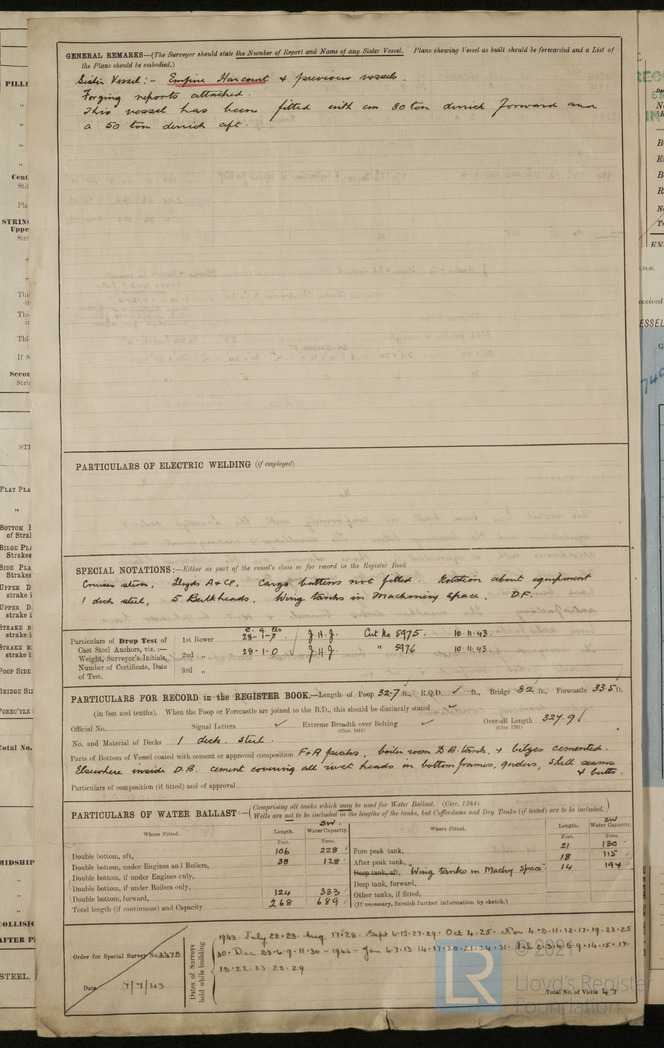 GENERAL REMARKS—(The Surveyor should state the Number of Report and Name of any Sister Vessel. Plans showing Vessel as built should be forwarded and a List of
the Plans should be embodied.)
Sister Vessel:- Empire Harcourt & previous vessels.
Forging reports attached.
This vessel has been fitted with an 80 ton derrick forward and
a 50 ton derrick aft.
PARTICULARS OF ELECTRIC WELDING (if employed)
SPECIAL NOTATIONS:—Either as part of the vessel's class or for record in the Register Book
Cruiser stern, Lloyds A & CP. Cargo battens not fitted. Notation about equipment
1 deck steel, 5 Bulkheads. Wing tanks in Machinery Space. D.F.
Particulars of Drop Test of
Cast Steel Anchors, viz. :—
Weight, Surveyor's Initials,
Number of Certificate, Date
of Test.
1st Bower 28-1-7 J.H.J. Cert No 5975. 10.11.43.
2nd „ 28-1-0 J.H.J. " 5976 10.11.43.
3rd „
PARTICULARS FOR RECORD in the REGISTER BOOK.—Length of Poop 32.7 ft., R.Q.D. ✓ ft., Bridge 82 ft., Forecastle 33.5 ft.
(in feet and tenths). When the Poop or Forecastle are joined to the B.D., this should be distinctly stated ✓
Official No. Signal Letters ✓ Extreme Breadth over Belting ✓ Over-all Length 327.9
No. and Material of Decks 1 deck. Steel.
Parts of Bottom of Vessel coated with cement or approved composition F & A peaks, boiler room D.B. tank, & bilges cemented.
Elsewhere inside D.B. cement covering all rivet heads in bottom frames, girders, shell seams
& butts.
Particulars of composition (if fitted) and of approval
PARTICULARS OF WATER BALLAST:—(Comprising all tanks which may be used for Water Ballast. (Circ. 1284)
Wells are not to be included in the lengths of the tanks, but Cofferdams and Dry Tanks (if tested) are to be included.)
Where Fitted. Length. Water Capacity. Where Fitted. Length. Water Capacity.
Feet. Tons. Feet. Tons.
Double bottom, aft, 106 228 Fore peak tank, 21 130
Double bottom, under Engines and Boilers, 38 128 After peak tank, 18 115
Double bottom, if under Engines only, Deep tank, aft, "Wing tanks in Machy Space" 14 194
Double bottom, if under Boilers only, Deep tank, forward,
Double bottom, forward, 124 333 Other tanks, if fitted,
Total length (if continuous) and Capacity 268 689 (If necessary, furnish further information by sketch.)
Order for Special Survey No. 2478
Date 7/7/43
Dates of Surveys
held while building
1943. July 22.23. Aug 17.28. Sept 6.15.27.29. Oct 4.25. Nov 4.8.11.12.17.19.23.25
30. Dec
Total No. of Visits 47
© 2021
Lloyd's Register
Foundation
LR